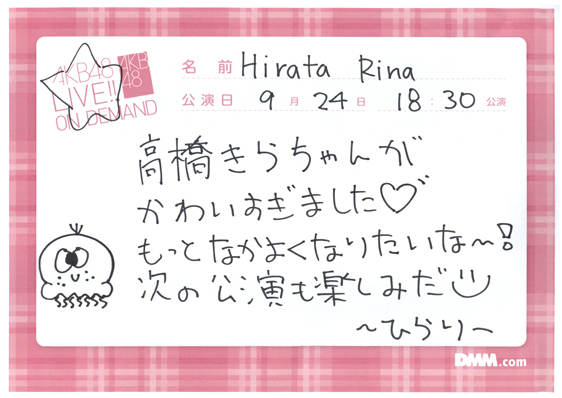 AKB48
LIVE!!
ON DEMAND
AKB
48
名前 Hirata Rina
公演日 9月24日 18:30公演
高橋きらちゃんが
かわいすぎました♡
もっとなかよくなりたいな〜!
次の公演も楽しみだ
〜ひらりー
DMM.com